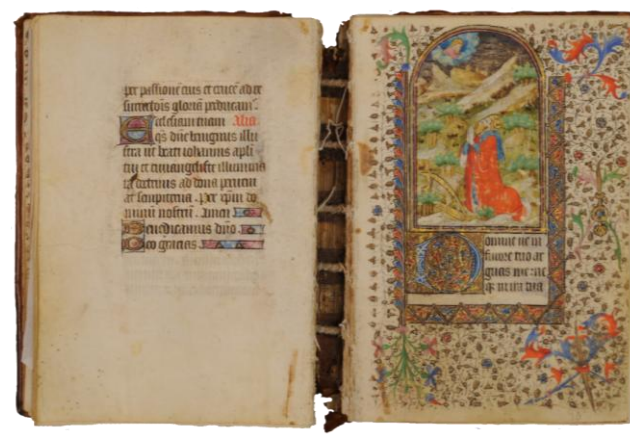 per passionē eius et crucē ad re
surrectiōis gloriā perducam̄
Ecclesiam tuam Alia.
qs dn̄e benignus illu
stra ut beati iohannis apli
tui et euuangeliste illumina
ta doctrinis ad dona perueni
at sempiterna. Per xp̄m do
minum nostrū. Amen
Benedicamus dn̄o
Deo gracias
Domine ne in
furore tuo ar
guas me ne
q̄ in ira tua